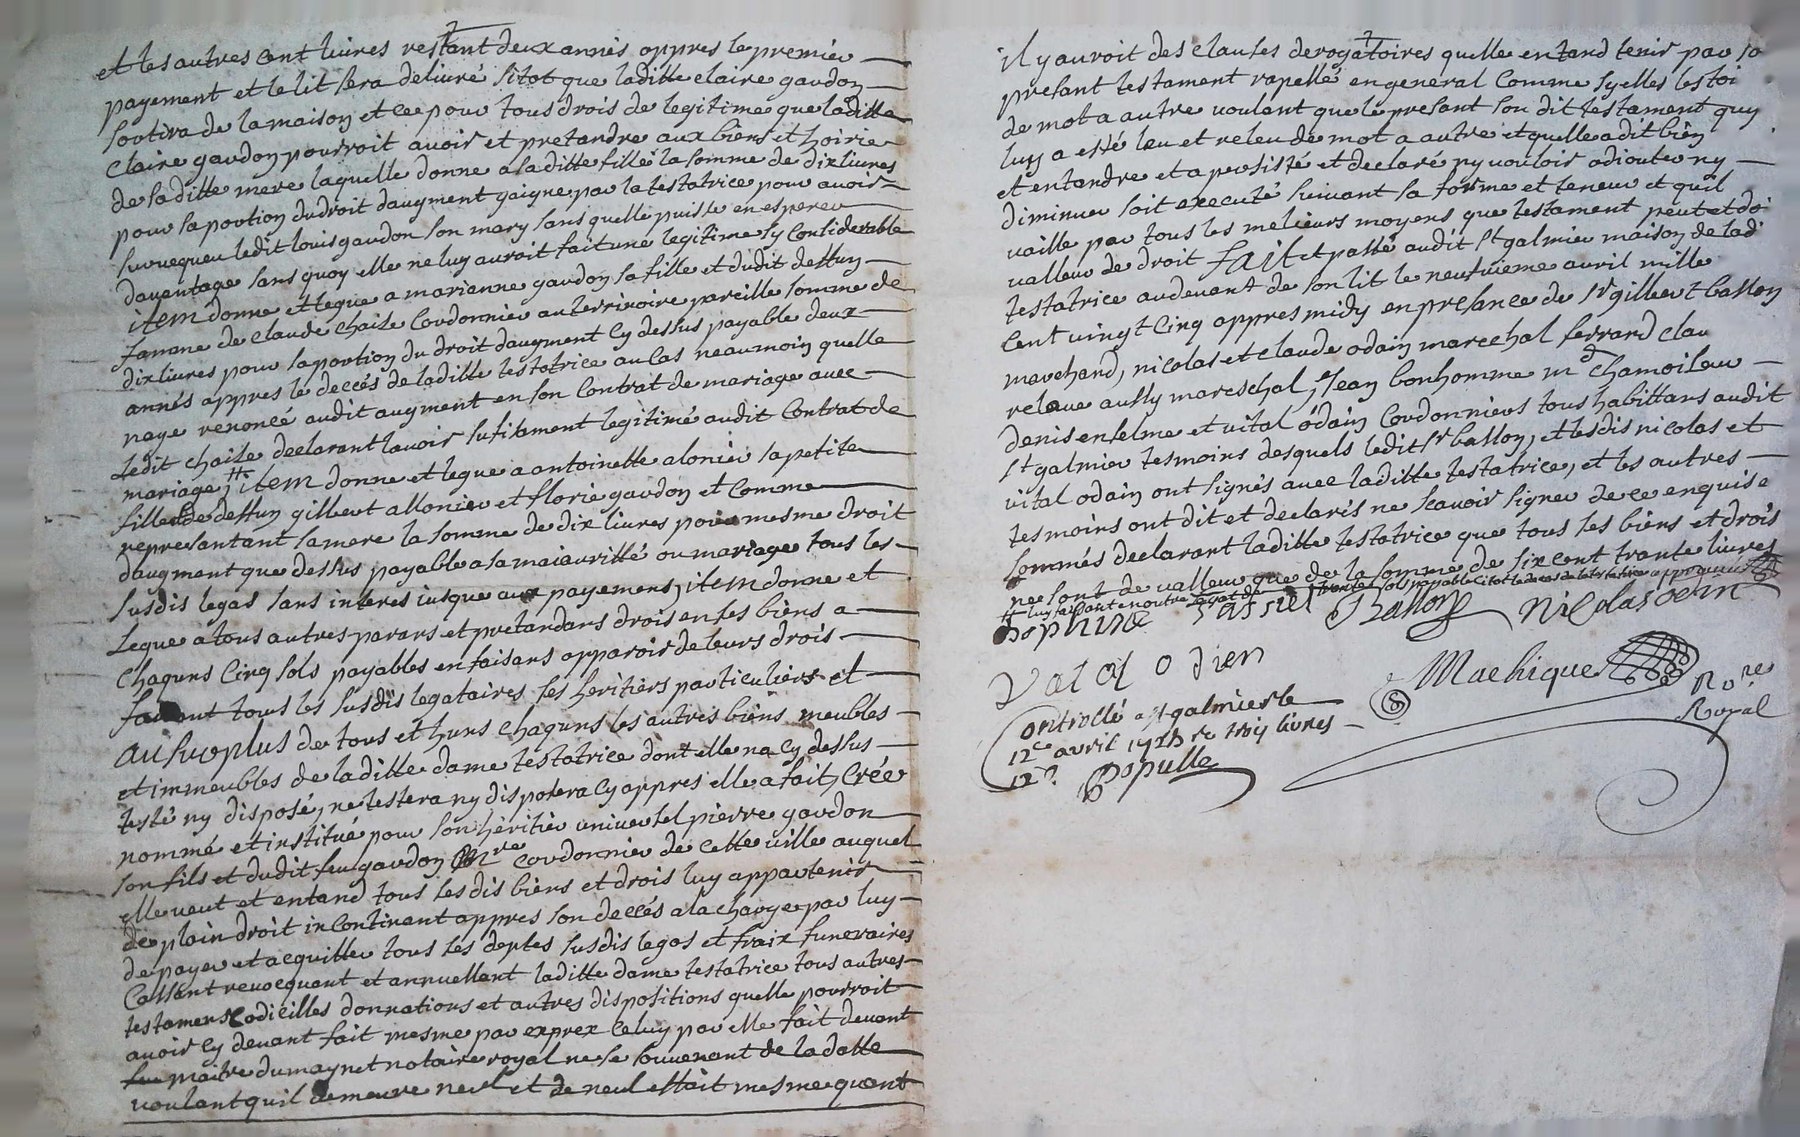 et les autres cent livres restant deux annés appres le premier
payement et le lit sera delivré sitot que laditte claire gaudon
sortira de la maison et ce pour tous drois de legitime que laditte
claire gaudon pourroit avoir et pretandre aux biens et hoirie
de saditte mere laquelle donne a saditte fille la somme de dix livres
pour sa portion du droit daugment gaigné par la testatrice pour avoir
survequeu ledit louis gaudon son mary sans quelle puisse en esperer
davantage sans quoy elle ne luy auroit fait une legitime sy considerable
item donne et legue a marianne gaudon sa fille et dudit deffun
famme de claude chaize cordonnier au terrinoire pareille somme de
dix livres pour sa portion du droit daugment cy dessus payable deux
annés appres le deccés de laditte testatrice au cas neaumoin quelle
naye renoncé audit augment en son contrat de mariage avec
ledit chaize declarant lavoir sufisament legitimé audit contrat de
mariage, item donne et legue a antoinette alonier sa petite
fille de deffun gilbert allonier et florie gaudon et comme
represantant sa mere la somme de dix livres pour mesme droit
daugment que dessus payable a sa maieurité ou mariage tous les
susdis legas sans interes iusque aux payemens, item donne et
legue a tous autres parans et pretandans drois en ses biens a
chaquns cinq sols payables en faisans apparoir de leurs drois
faisant tous les susdis legataires ses heritiers particuliers et
au surplus de tous et huns chaquns les autres biens meubles
et immeubles de laditte dame testatrice dont elle na cy dessus
testé ny disposé, ne testera ny disposera cy appres elle a fait, créé
nommé et institué pour son héritier universel pierre gaudon
son fils et dudit feu gaudon mre cordonnier de cette ville auquel
elle veut et entand tous lesdis biens et drois luy appartenir
de plain droit incontinant appres son deccés a la charge par luy
de payer et acquitter tous ses deptes susdis legas et fraix funeraires
Cassant revocquant et annullant laditte dame testatrice tous autres
testamens codicilles donnations et autres dispositions quelle pourroit
avoir cy devant fait mesme par exprex celuy par elle fait devant
feu maitre dumaynet notaire royal ne se souvenant de la datte
voulant quil demeure neul et de neul effait mesme quant
il y auroit des clauses derogatoires quelle entand tenir par so
presant testament rapellé en general comme sy elles lestoi
de mot a autre voulant que le presant son dit testament quy
luy a esté leu et releu de mot a autre et quelle a dit bien
et entandre et a persisté et declaré ny vouloir adiouter ny
diminuer soit executé suivant sa forme et teneur et quil
vaille par tous les melieurs moyens que testament peut et doi
valleur de droit fait et passé audit st galmier maison de ladi
testatrice au devant de son lit le neufvieme avril mille
cent vingt cinq appres midy en presance de sr gilbert basson
marchand, nicolas et claude odain marechal ferrand clau
relave aussy mareschal, jean bonhomme md chamoiseur
denis enselme et vital odain cordonniers tous habittans audit
st galmier tesmoins desquels ledit sr basson, et lesdis nicolas et
vital odain ont signés avec laditte testatrice, et les autres
tesmoins ont dit et declarés ne scavoir signer de ce enquis e
sommés declarant laditte testatrice que tous ses biens et drois
ne sont de valleur que de la somme de six cent trante livres
luy faisant en outre legat de trente sols payable
Basson Nicolas odin
Vital odien
Machique
Nore
Royal
Controllé a st galmier le
12e avril 1725 re troy livres
Populle